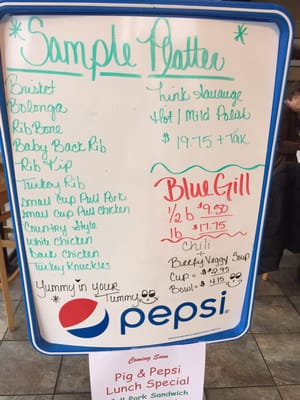 Sample Platter
Brisket
Bolonga
Rib Bone
Baby Back Rib
Rib Tip
Turkey Rib
Small Cup Pull Pork
Small Cup Pull Chicken
Country Style
White Chicken
Dark Chicken
Turkey Knuckles
Yummy in your
Tummy
Link Sausage
Hot / Mild Polish
$ 19.75 + Tax
Blue Gill
1/2 lb $9.50
lb $17.75
Chili
+
Beefy Veggy Soup
Cup = $2.95
Bowl = $4.15
pepsi
Coming Soon
Pig & Pepsi
Lunch Special
Pork Sandwich